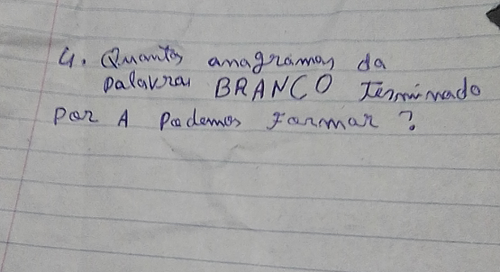 4. Quantos anagramas da
palavra BRANCO terminado
por A podemos formar ?